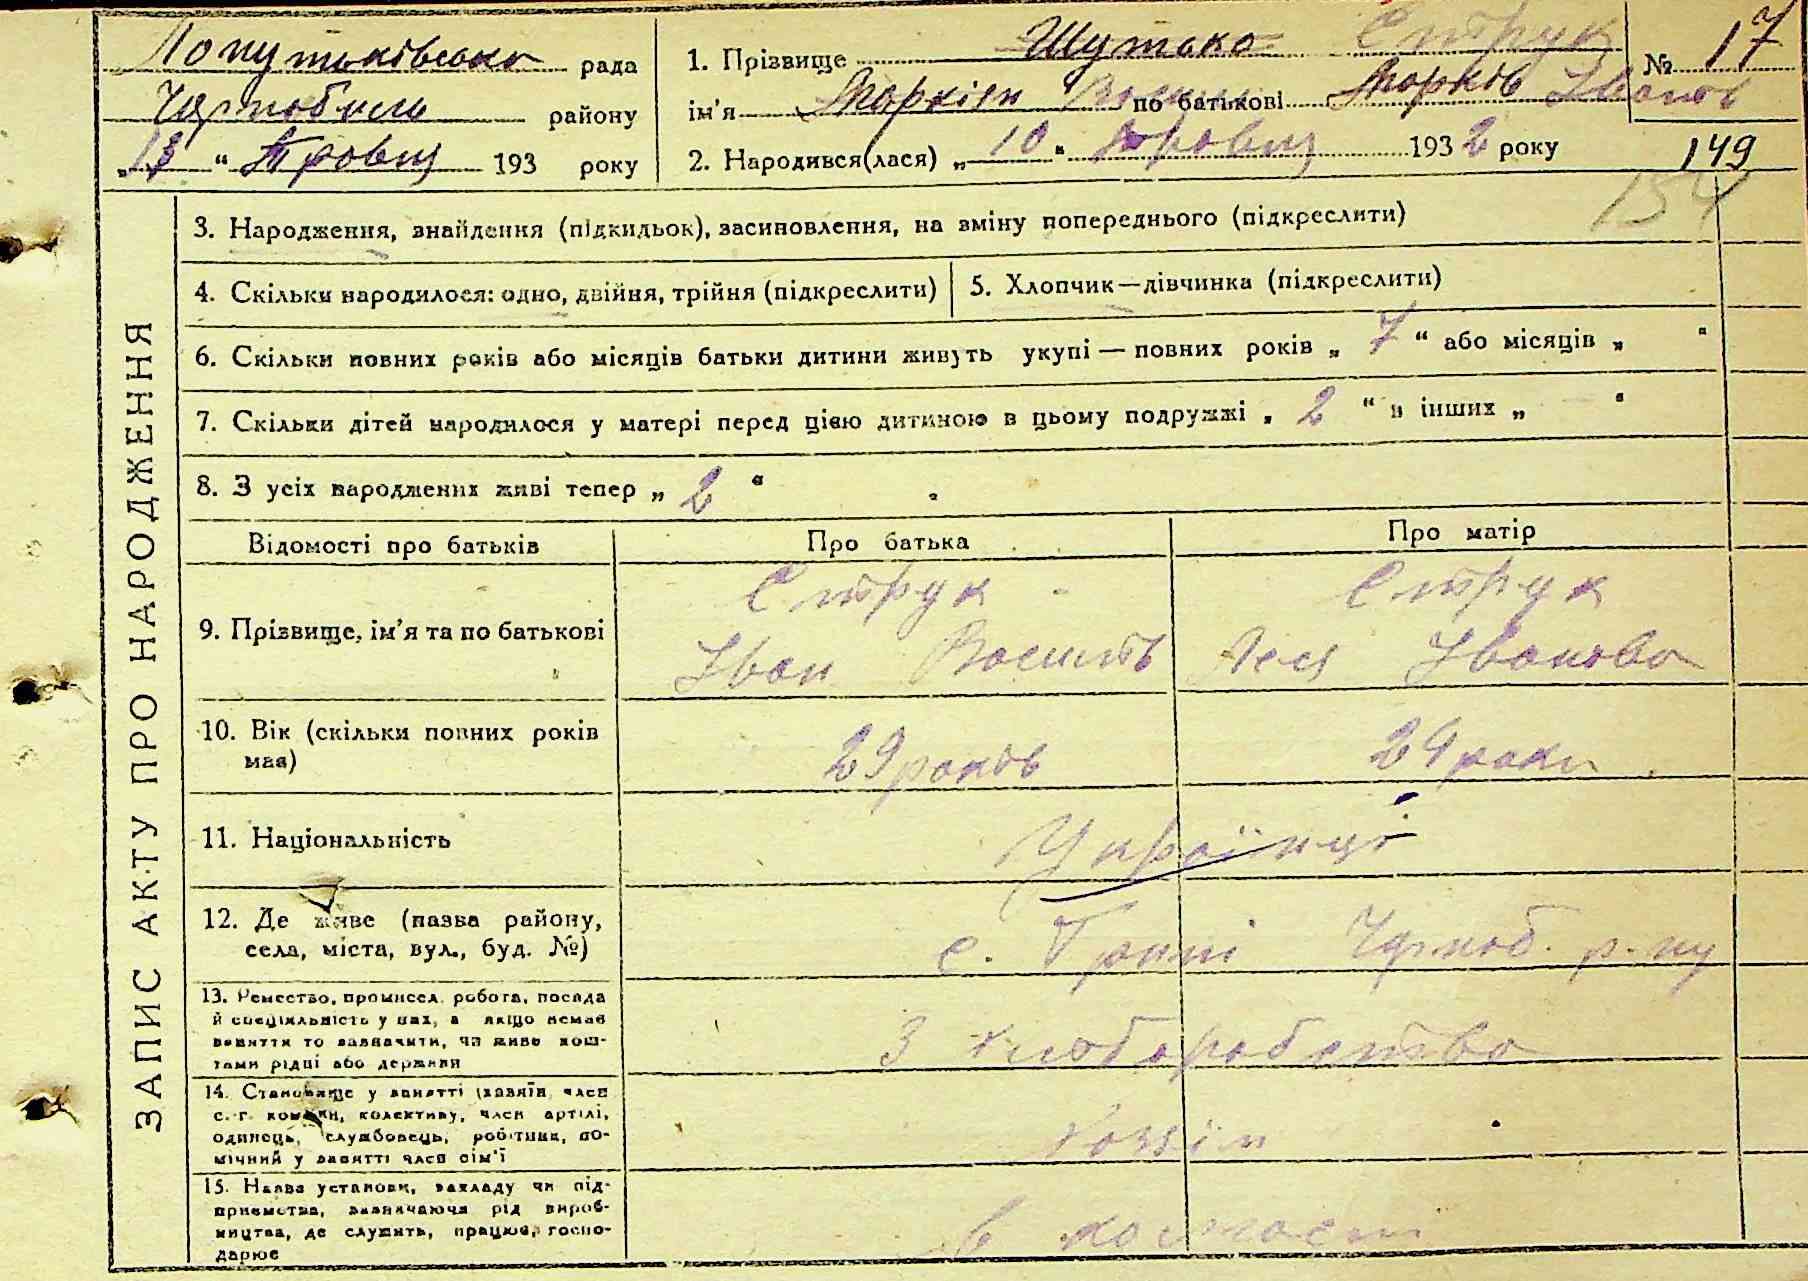 Лопутьківська рада
району
" 193 року
1. Прізвище Шутько Струк
ім'я Маркіян по батькові Марків Іванів
2. Народився(лася) „ 10 " 1932 року
№ 17
149
154
ЗАПИС АКТУ ПРО НАРОДЖЕННЯ
3. Народження, знайдення (підкидьок), засиновлення, на зміну попереднього (підкреслити)
4. Скільки народилося: одно, двійня, трійня (підкреслити)
5. Хлопчик—дівчинка (підкреслити)
6. Скільки повних років або місяців батьки дитини живуть укупі — повних років „ 7 " або місяців „ "
7. Скільки дітей народилося у матері перед цією дитиною в цьому подружжі „ 2 " в інших „ "
8. З усіх народжених живі тепер „ 2 "
Відомості про батьків
Про батька
Про матір
9. Прізвище, ім'я та по батькові
Струк
Іван
Струк
Іванова
10. Вік (скільки повних років
має)
29 років
24 роки
11. Національність
Українці
12. Де живе (назва району,
села, міста, вул., буд. №)
с. Чорноб. р-ну
13. Ремество, промисел, робота, посада
й спеціяльність у них, а якщо немає
заняття то зазначити, чи живе кош-
тами рідні або держави
З хліборобства
14. Становище у занятті (хазяїн, член
с.-г. комуни, колективу, член артілі,
одинець, службовець, робітник, по-
мічний у занятті член сім'ї
15. Назва установи, закладу чи під-
приємства, зазначаючи рід вироб-
ництва, де служить, працює, госпо-
дарює
в